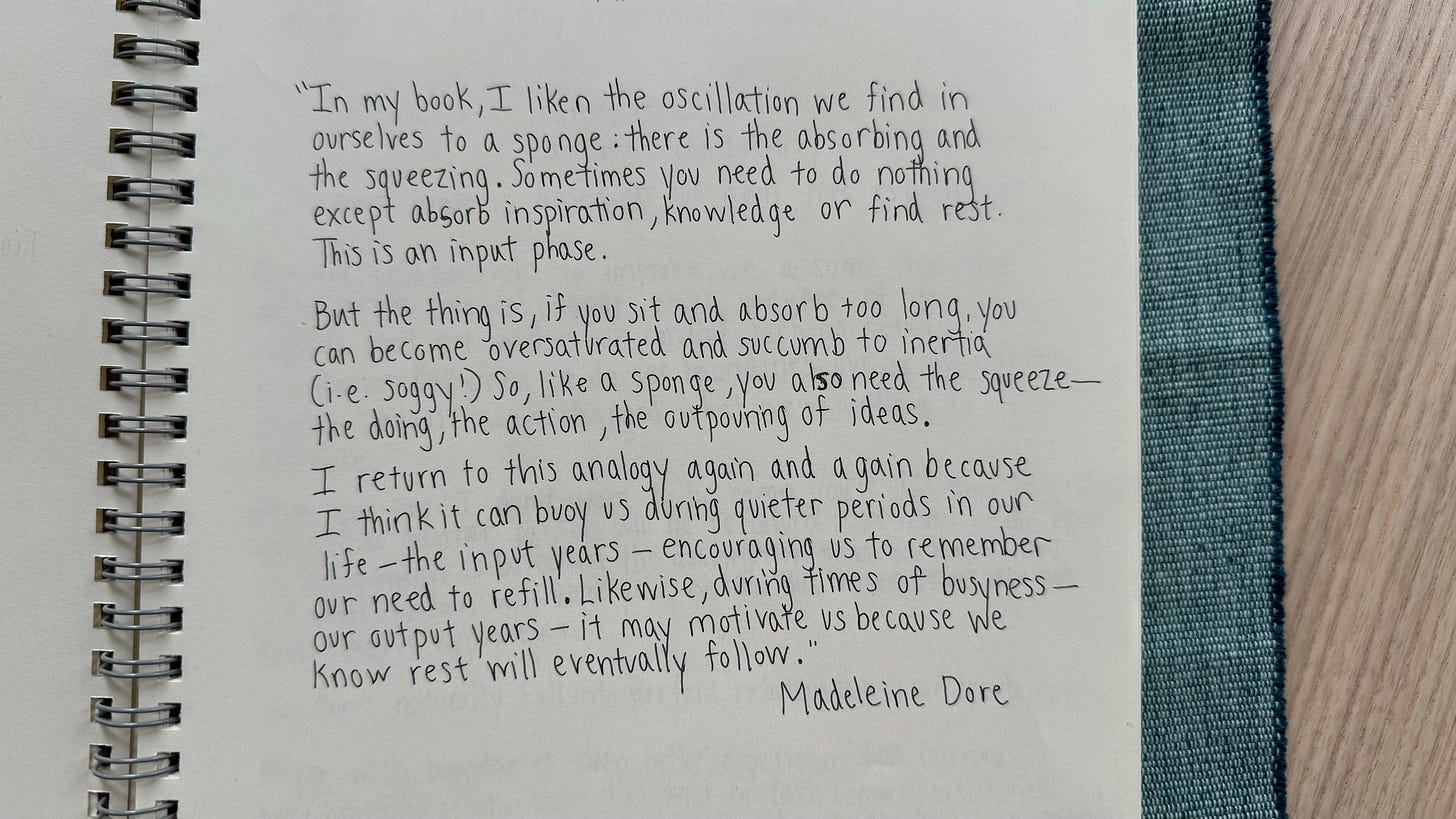 "In my book, I liken the oscillation we find in
ourselves to a sponge: there is the absorbing and
the squeezing. Sometimes you need to do nothing
except absorb inspiration, knowledge or find rest.
This is an input phase.
But the thing is, if you sit and absorb too long, you
can become oversaturated and succumb to inertia
(i.e. soggy!) So, like a sponge, you also need the squeeze—
the doing, the action, the outpouring of ideas.
I return to this analogy again and again because
I think it can buoy us during quieter periods in our
life – the input years – encouraging us to remember
our need to refill. Likewise, during times of busyness –
our output years – it may motivate us because we
know rest will eventually follow."
Madeleine Dore